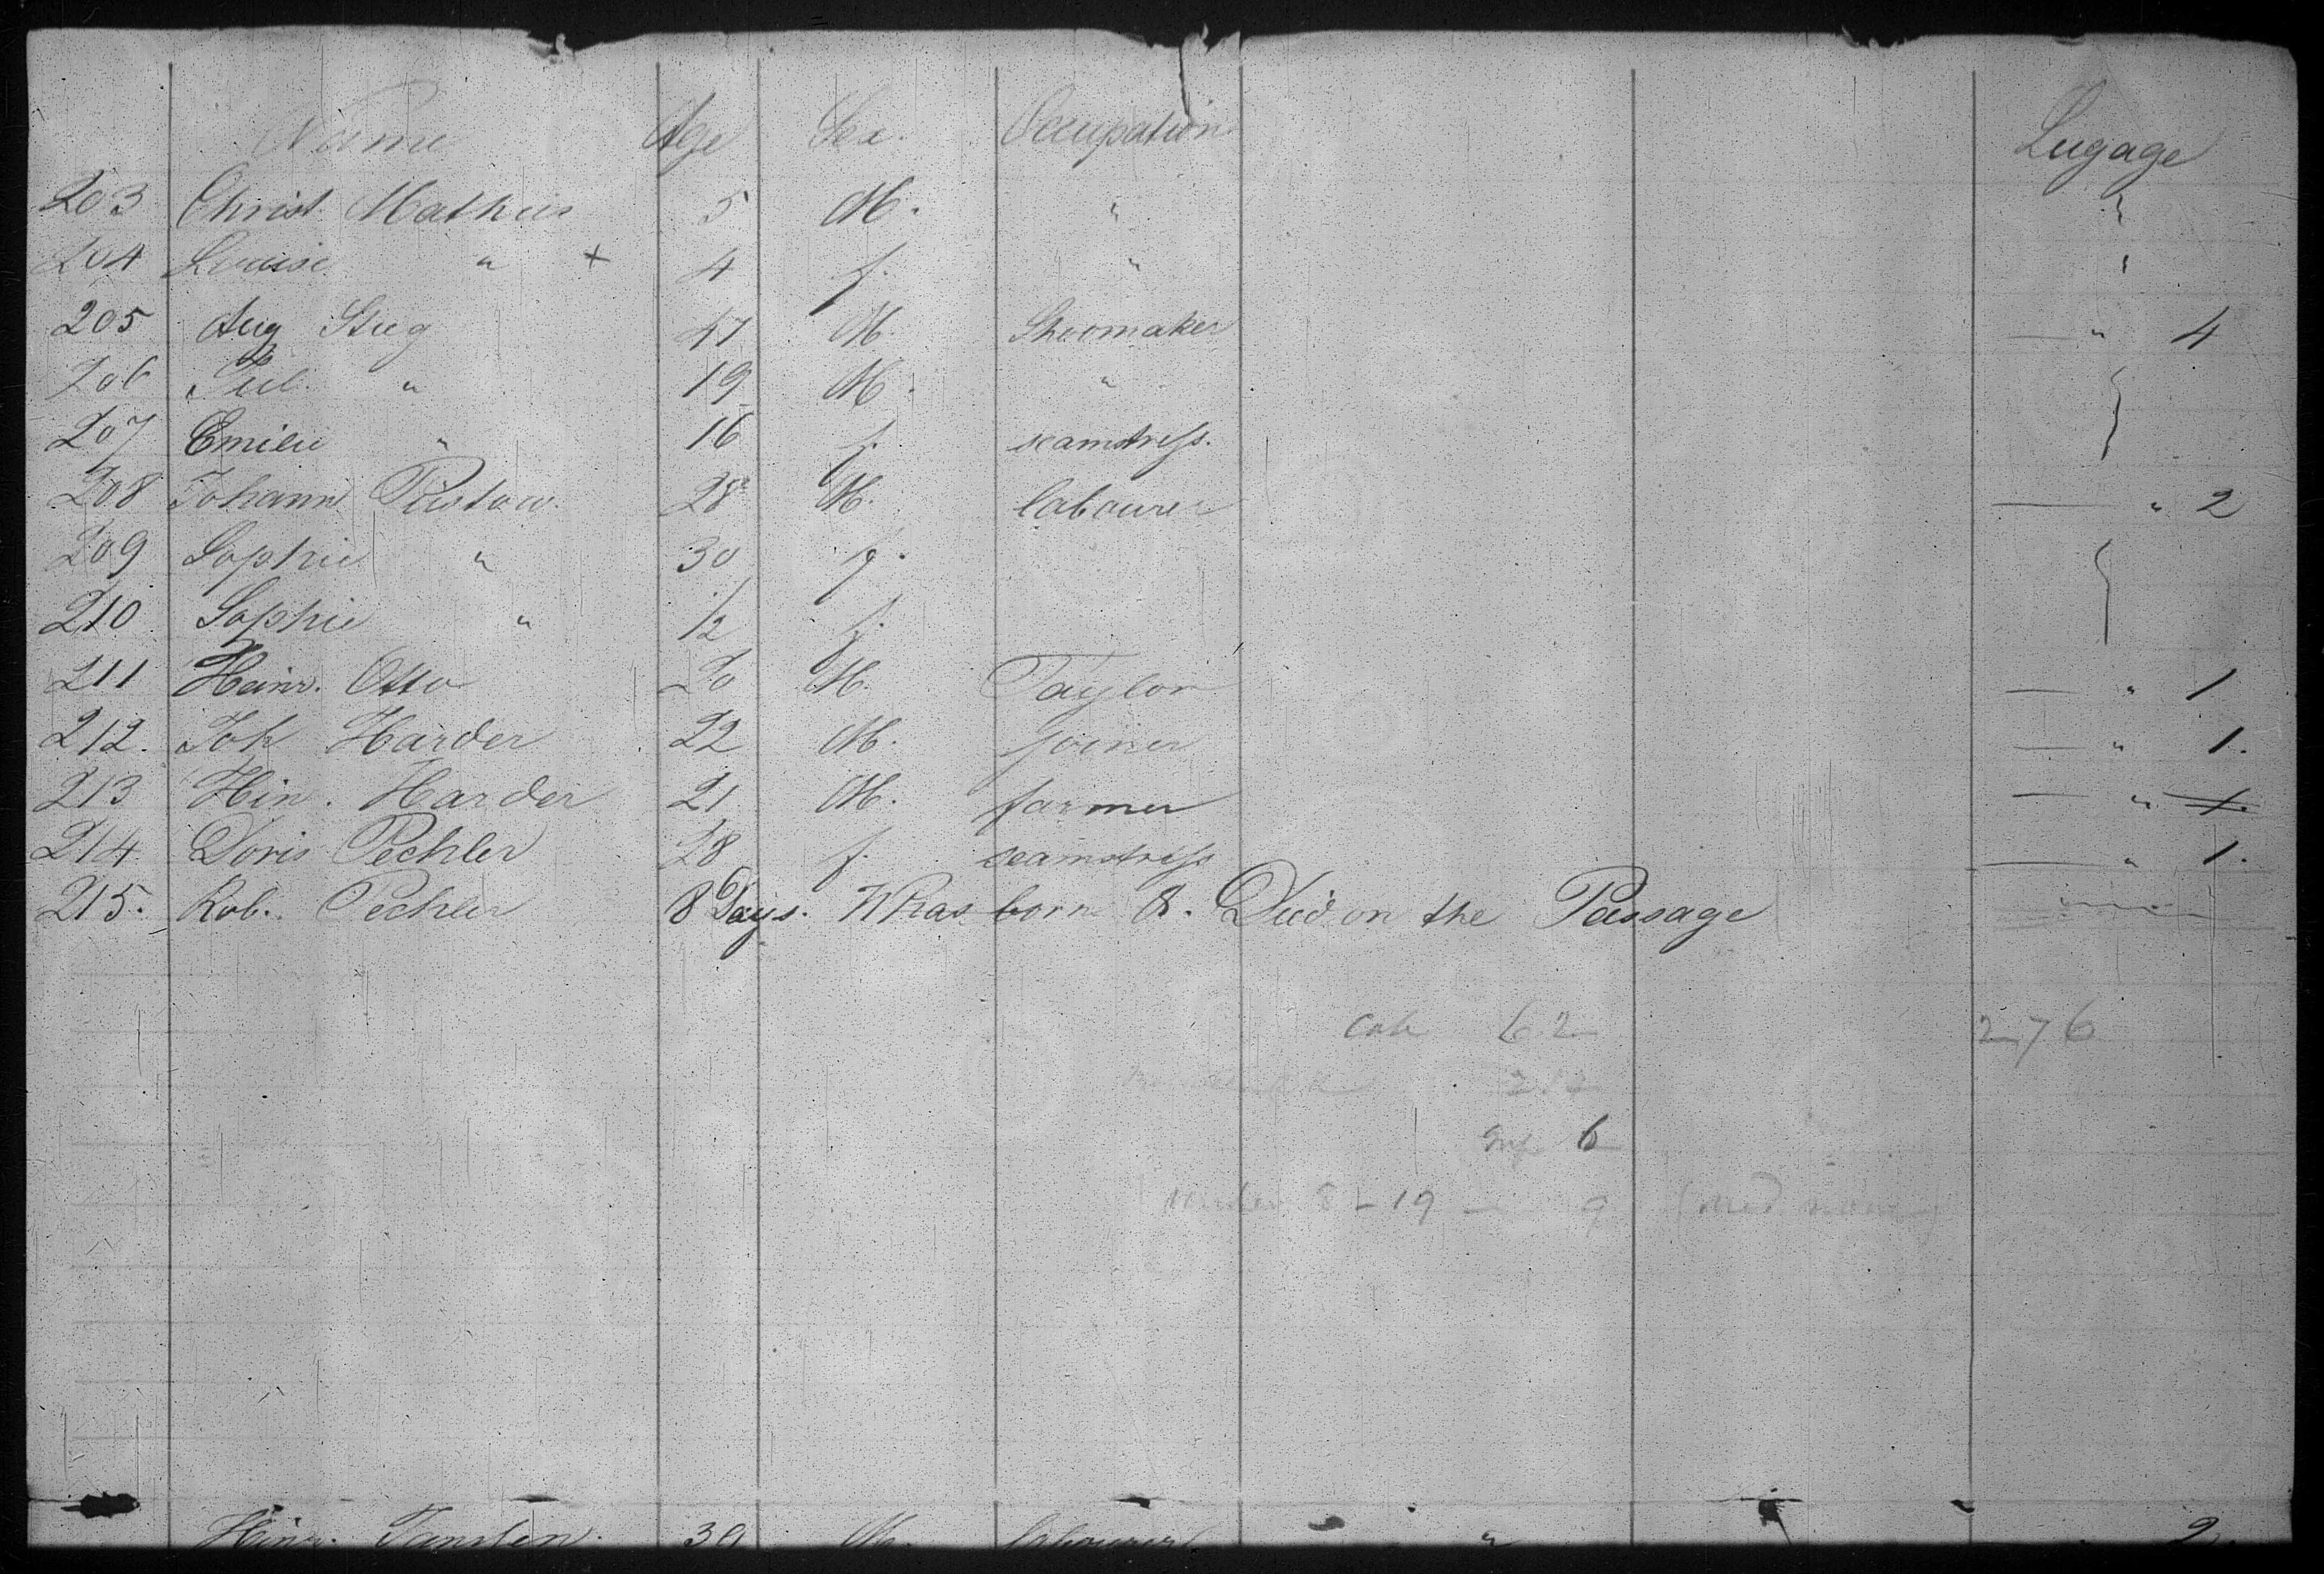 Name Age Sex. Occupation Lugage
203 Christ. Mathies 5 M. " "
204 Louise " + 4 f. " "
205 Aug Stug 47 M. Shoomaker " 4
206 Jul. " 19 M. "
207 Emilie " 16 f. seamstress.
208 Johann Pustow. 28 M. labourer " 2
209 Sophie " 30 f.
210 Sophie " 1/2 f.
211 Heinr. Otto 20 M. Taylor " 1
212. Joh Harder 22 M. joiner " 1.
213 Hin. Harder 21 M. farmer " 1.
214 Doris Pechler 28 f. seamstress " 1.
215. Rob. Pechler 8 Days. Whas born & Died on the Passage
Cab 62 276
212
Inf 6
8 - 19 — 9
Heinr. 39 M. labourer " 2.